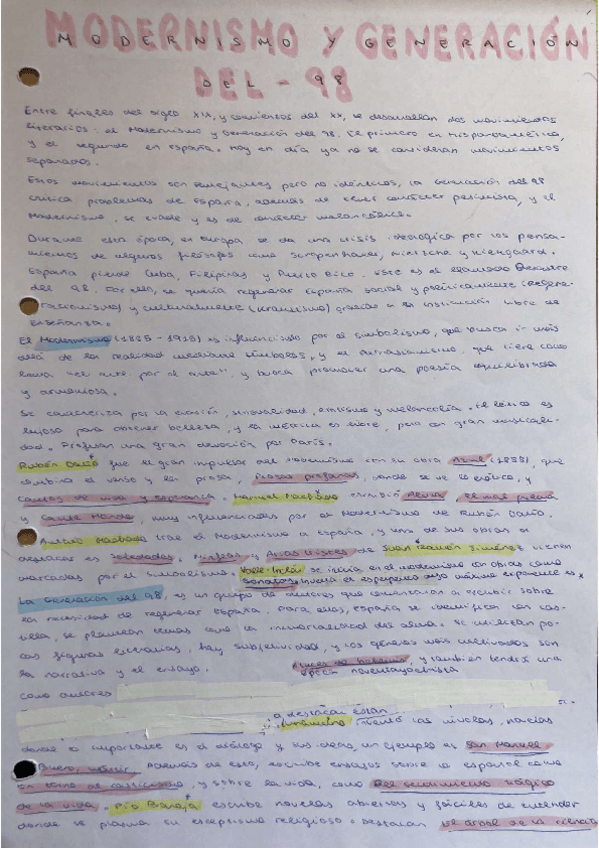 MODERNISMO Y GENERACIÓN
DEL-98
Entre finales del siglo XIX, y comienzos del XX, se desarrollan dos movimientos
literarios: el Modernismo y Generación del 98. El primero en Hispanoamérica,
y el segundo en España. Hoy en día ya no se consideran movimientos
separados.
Estos movimientos son semejantes pero no idénticos, la Generación del 98
critica problemas de España, además de tener carácter pesimista, y el
Modernismo, se evade y es de carácter melancólico.
Durante esta época, en Europa se da una crisis ideológica por los pensa-
mientos de algunos filósofos como Schopenhauer, Nietzsche y Kierkegaard.
España pierde Cuba, Filipinas y Puerto Rico. Este es el llamado Desastre
del 98. Por ello, se quería regenerar España social y políticamente (Regene-
racionismo) y culturalmente (Krausismo) gracias a la institución libre de
Enseñanza.
El Modernismo (1885-1915) es influenciado por el simbolismo, que busca ir más
allá de la realidad mediante símbolos, y el parnasianismo, que tiene como
lema "el arte por el arte", y busca promover una poesía equilibrada
y armoniosa.
Se caracteriza por la evasión, sensualidad, erotismo y melancolía. El léxico es
lujoso para obtener belleza, y la métrica es libre, pero con gran musicali-
dad. Profesan una gran devoción por París.
Rubén Darío fue el gran impulsor del modernismo con su obra Azul (1888), que
combina el verso y la prosa, Prosas profanas, donde se ve lo exótico, y
Cantos de vida y esperanza. Manuel Machado escribió Alma, El mal poema
y Cante Hondo, muy influenciadas por el Modernismo de Rubén Darío.
Antonio Machado trae el Modernismo a España, y una de sus obras a
destacar es Soledades. Ninfeas y Arias tristes de Juan Ramón Jiménez vienen
marcadas por el simbolismo. Valle-Inclán se inicia en el modernismo con obras como
Sonatas. Inventa el esperpento cuyo máximo exponente es
La Generación del 98, es un grupo de autores que comenzaron a escribir sobre
la necesidad de regenerar España. Para ellos, España se identifica con Cas-
tilla, se plantean temas como la inmortalidad del alma. Se utilizan po-
cas figuras literarias, hay subjetividad, y los géneros más cultivados son
la narrativa y el ensayo.
Luces de bohemia, y también tendrá una
época noventayochista
Como autores
a destacar están
Unamuno inventó las nivolas, novelas
donde lo importante es el diálogo y sus ideas, un ejemplo es San Manuel
Bueno, mártir. Además de esto, escribe ensayos sobre lo español como
En torno al casticismo, y sobre la vida, como Del sentimiento trágico
de la vida. Pío Baroja escribe novelas abiertas y fáciles de entender
donde se plasma su escepticismo religioso. Destacan El árbol de la ciencia